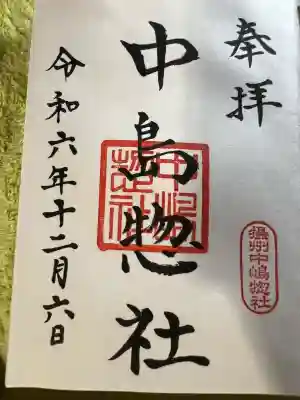 奉拝
中島惣社
中嶋惣社
摂州中嶋惣社
令和六年十二月六日